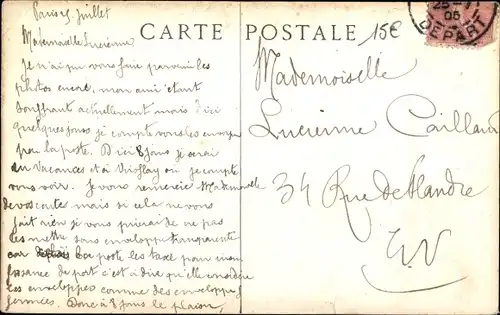 Paris 25 Juillet
CARTE POSTALE
15€
05
DEPART
Mademoiselle Lucienne
Je n'ai pu vous faire parvenir les
photos encore, mon ami étant
souffrant actuellement mais d'ici
quelques jours je compte vous les envoyer
par la poste. D'ici 8 jours je serai
en Vacances et à Viroflay où je compte
vous voir. Je vous remercie Mademoiselle
de vos cartes mais si cela ne vous
fait rien je vous prierai de ne pas
les mettre sous enveloppe transparente
car la poste les taxe pour
de port c'est à dire qu'elle considère
les enveloppes comme des enveloppes
fermées. Donc à 8 jours le plaisir,
Mademoiselle
Lucienne Caillaud
34 Rue de Flandre
E.V